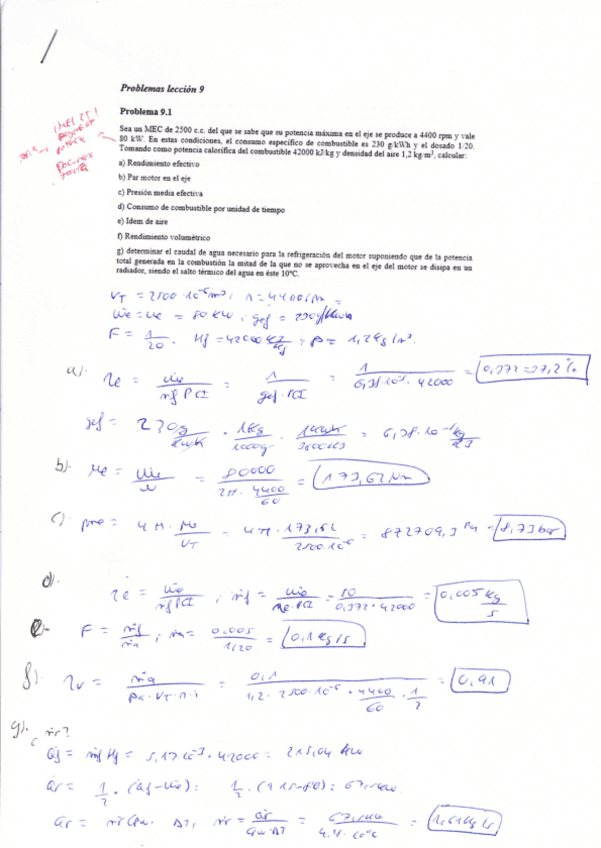 Problemas lección 9
Problema 9.1
Sea un MEC de 2500 c.c. del que se sabe que su potencia máxima en el eje se produce a 4400 rpm y vale
80 kW. En estas condiciones, el consumo específico de combustible es 230 g/kWh y el dosado 1/20.
Tomando como potencia calorífica del combustible 42000 kJ/kg y densidad del aire 1,2 kg/m³, calcular:
a) Rendimiento efectivo
b) Par motor en el eje
c) Presión media efectiva
d) Consumo de combustible por unidad de tiempo
e) Idem de aire
f) Rendimiento volumétrico
g) determinar el caudal de agua necesario para la refrigeración del motor suponiendo que de la potencia
total generada en la combustión la mitad de la que no se aprovecha en el eje del motor se disipa en un
radiador, siendo el salto térmico del agua en éste 10ºC.
VT = 2500·10⁻⁶ m³ ; n = 4400 rpm
= 80 kW ; gef = 230 g/kWh
F = 1/20 · Hf = 42000 kJ/kg ; ρ = 1,2 kg/m³.
a). ηe = ẇe/ṁf PCI = 1/gef·PCI = 1/6,38·10⁻⁵ · 42000 = 0,372 = 37,2%
gef = 230 g/kWh · 1kg/1000g · 1kWh/3600kJ = 6,38·10⁻⁵ kg/kJ
b). Me = ẇe/ω = 80000/2π · 4400/60 = 173,62 Nm
c). pme = 4π · Me/VT = 4π · 173,62/2500·10⁻⁶ = 872709,3 Pa = 8,73 bar
d). ηe = ẇe/ṁf PCI ; ṁf = ẇe/ηe·PCI = 80/0,372·42000 = 0,005 kg/s
e. F = ṁf/ṁa ; ṁa = 0,005/1/20 = 0,1 kg/s
f). ηv = ṁa/ρa·VT·n·i = 0,1/1,2 · 2500·10⁻⁶ · 4400/60 · 1/2 = 0,91
g). ṁr?
Q̇f = ṁf Hf = 5,12·10⁻³ · 42000 = 215,04 kW
Q̇r = 1/2 · (Q̇f - ẇe) = 1/2 · (215-80) = 67,5 kW.
Q̇r = ṁr Cpw · ΔT ; ṁr = Q̇r/Cpw·ΔT = 67,5 kW/4,18 · 10ºC = 1,61 kg/s